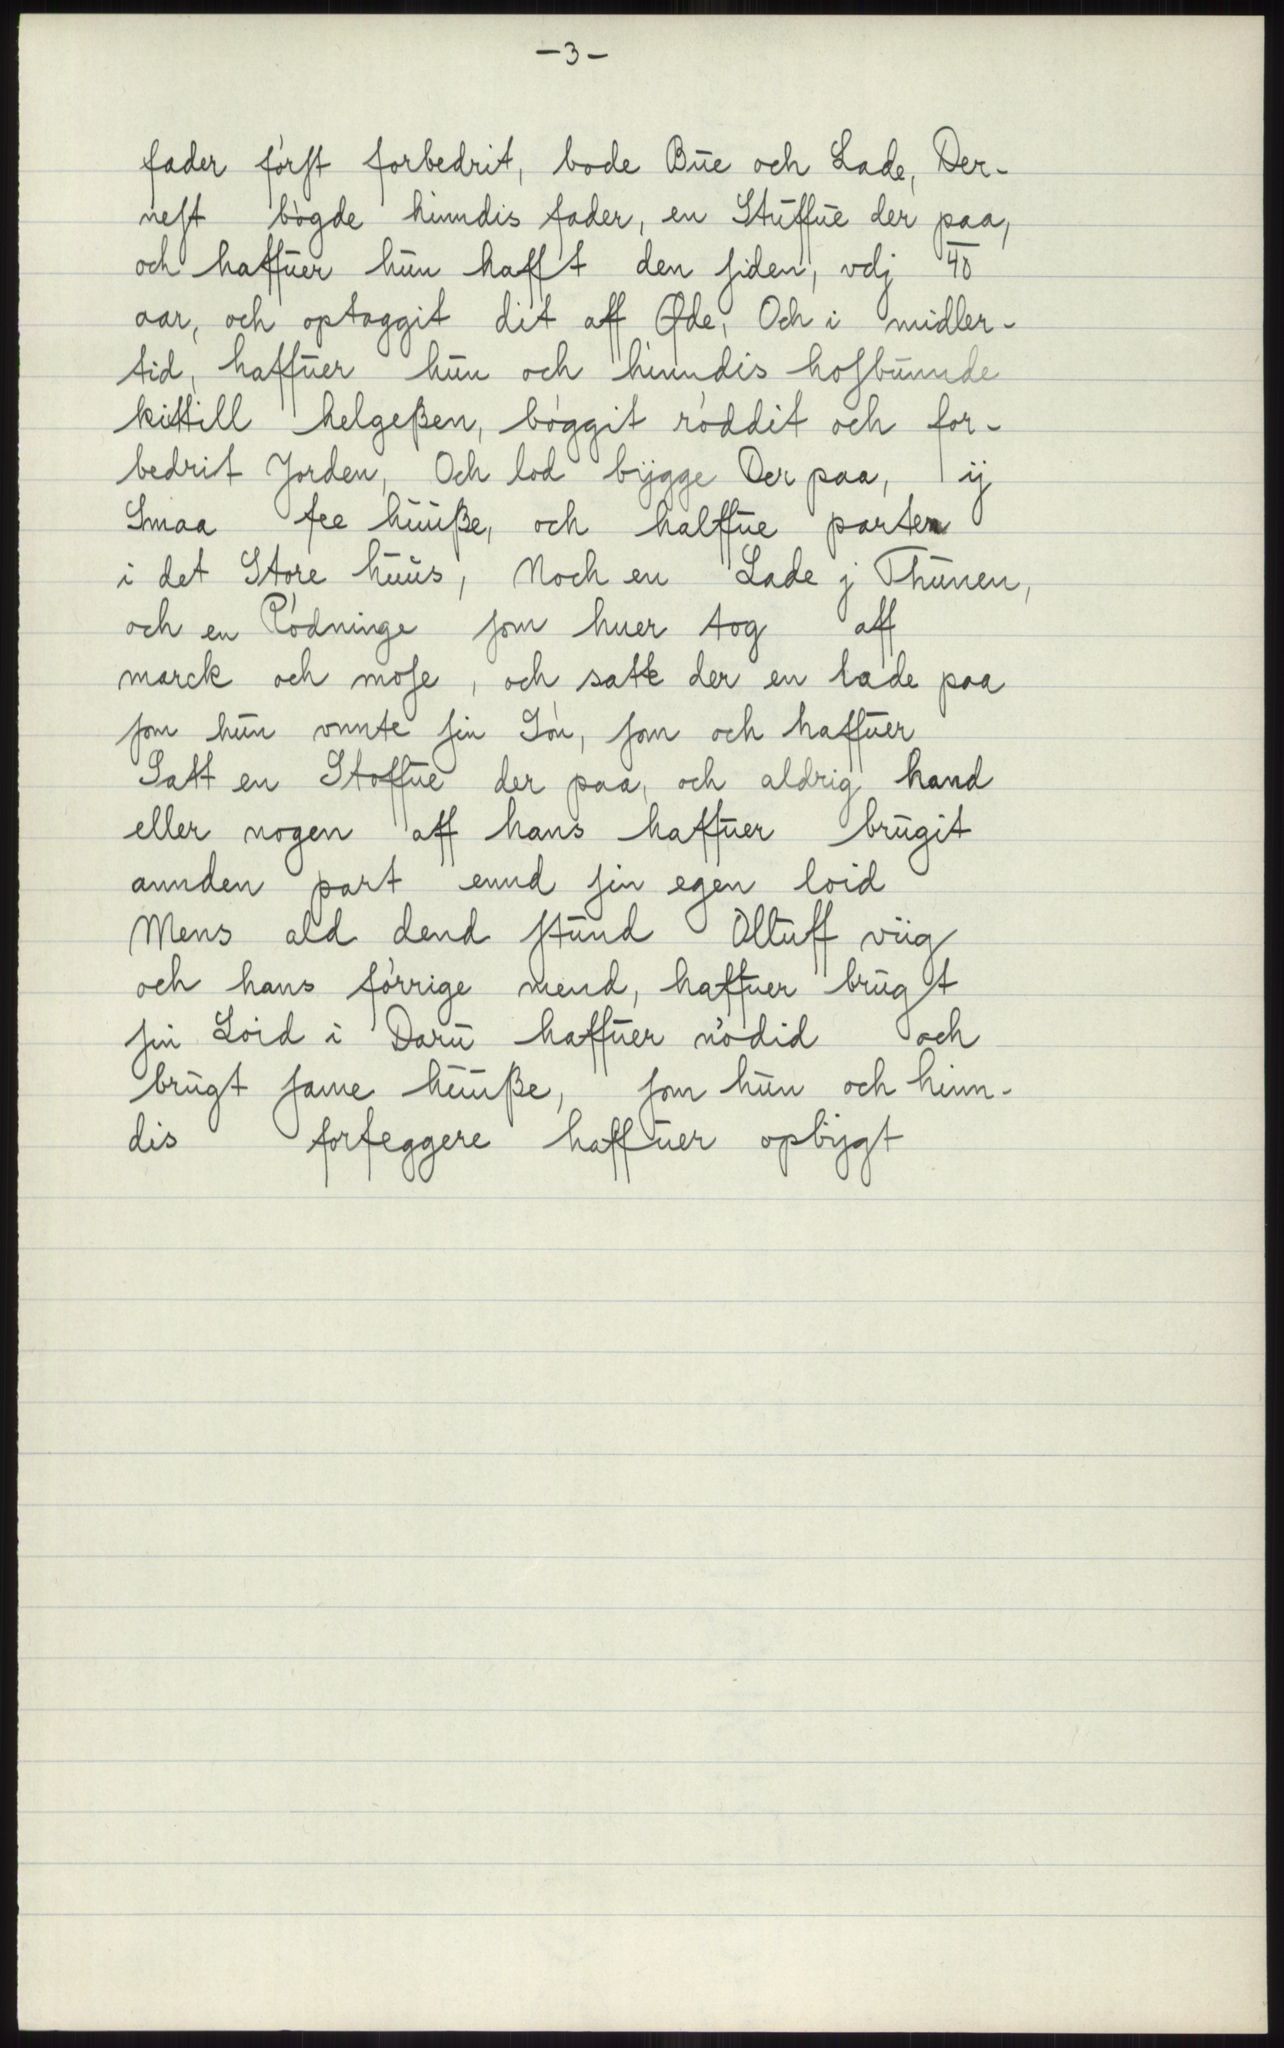 -3-
fader førſt forbedrit, bode Būe och Lade, Der-
neſt bøgde hinndis fader, en Stūffūe der paa,
och haffūer hūn hafft den ſiden, vdj 40
aar, och optaggit dit aff Øde, Och i midler-
tid, haffūer hūn och hinndis hoſbūnnde
kittill helgeßen, bøggit røddit och for-
bedrit Jorden, Och lod bÿgge Der paa, ij
Smaa fee hūūße, och halffūe parten
i det Store hūūs, Noch en Lade j Thūnen,
och en Rødninge ſom huer tog aff
marck och moſe, och satte der en lade paa
ſom hūn vnnte ſin Søn, ſom och haffūer
Satt en Stoffūe der paa, och aldrig hand
eller nogen aff hans haffūer brūgit
annden part ennd ſin egen loid
Mens ald dend ſtūnd Olluff viig
och hans førrige mend, haffuer brūgt
ſin Loid i Darū haffūer nødid och
brūgt ſame hūūße, ſom hūn och hinn-
dis forfeggere haffūer opbÿgt